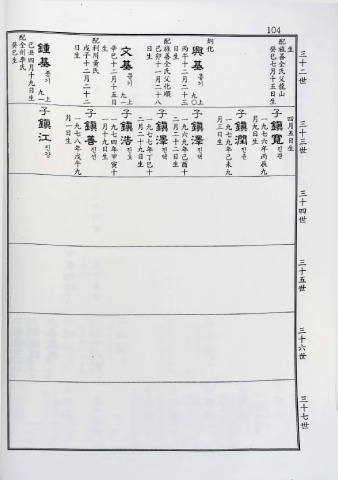 104
三十二世
生
配旌善全氏父龍山
癸巳七月十五日生
炯化
興基 흥기 九〇上
丙午十二月二十三
日生
配旌善全氏父化順
己卯十一月二十八
日生
文基 문기 九一上
辛巳十二月十五日
生
配利川黃氏
戊子十二月二十二
日生
鍾基 종기 九一上
己丑四月十九日生
配全州李氏
癸巳生
三十三世
四月五日生
子鎭寬 진관
一九七六年丙辰九
月九日生
子鎭潤 진윤
一九七九年己未九
月三日生
子鎭澤 진택
一九六九年己酉十
二月二十二日生
子鎭澤 진택
一九七七年丁巳十
二月二十九日生
子鎭浩 진호
一九七四年甲寅十
一月十九日生
子鎭善 진선
一九七八年戊午九
月一日生
子鎭江 진강
三十四世
三十五世
三十六世
三十七世